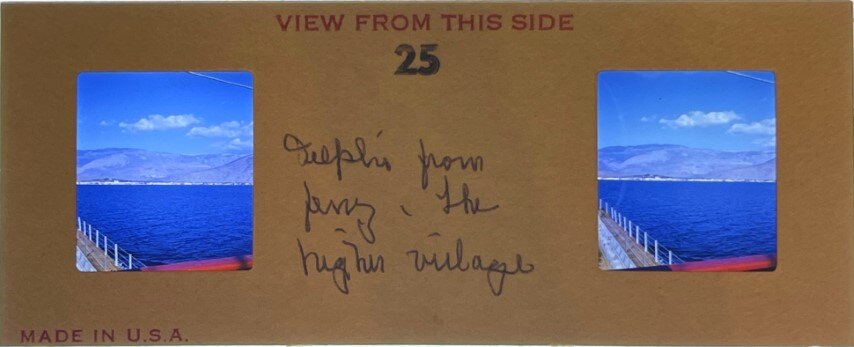 VIEW FROM THIS SIDE
25
Delphi from
ferry, the
higher village
MADE IN U.S.A.